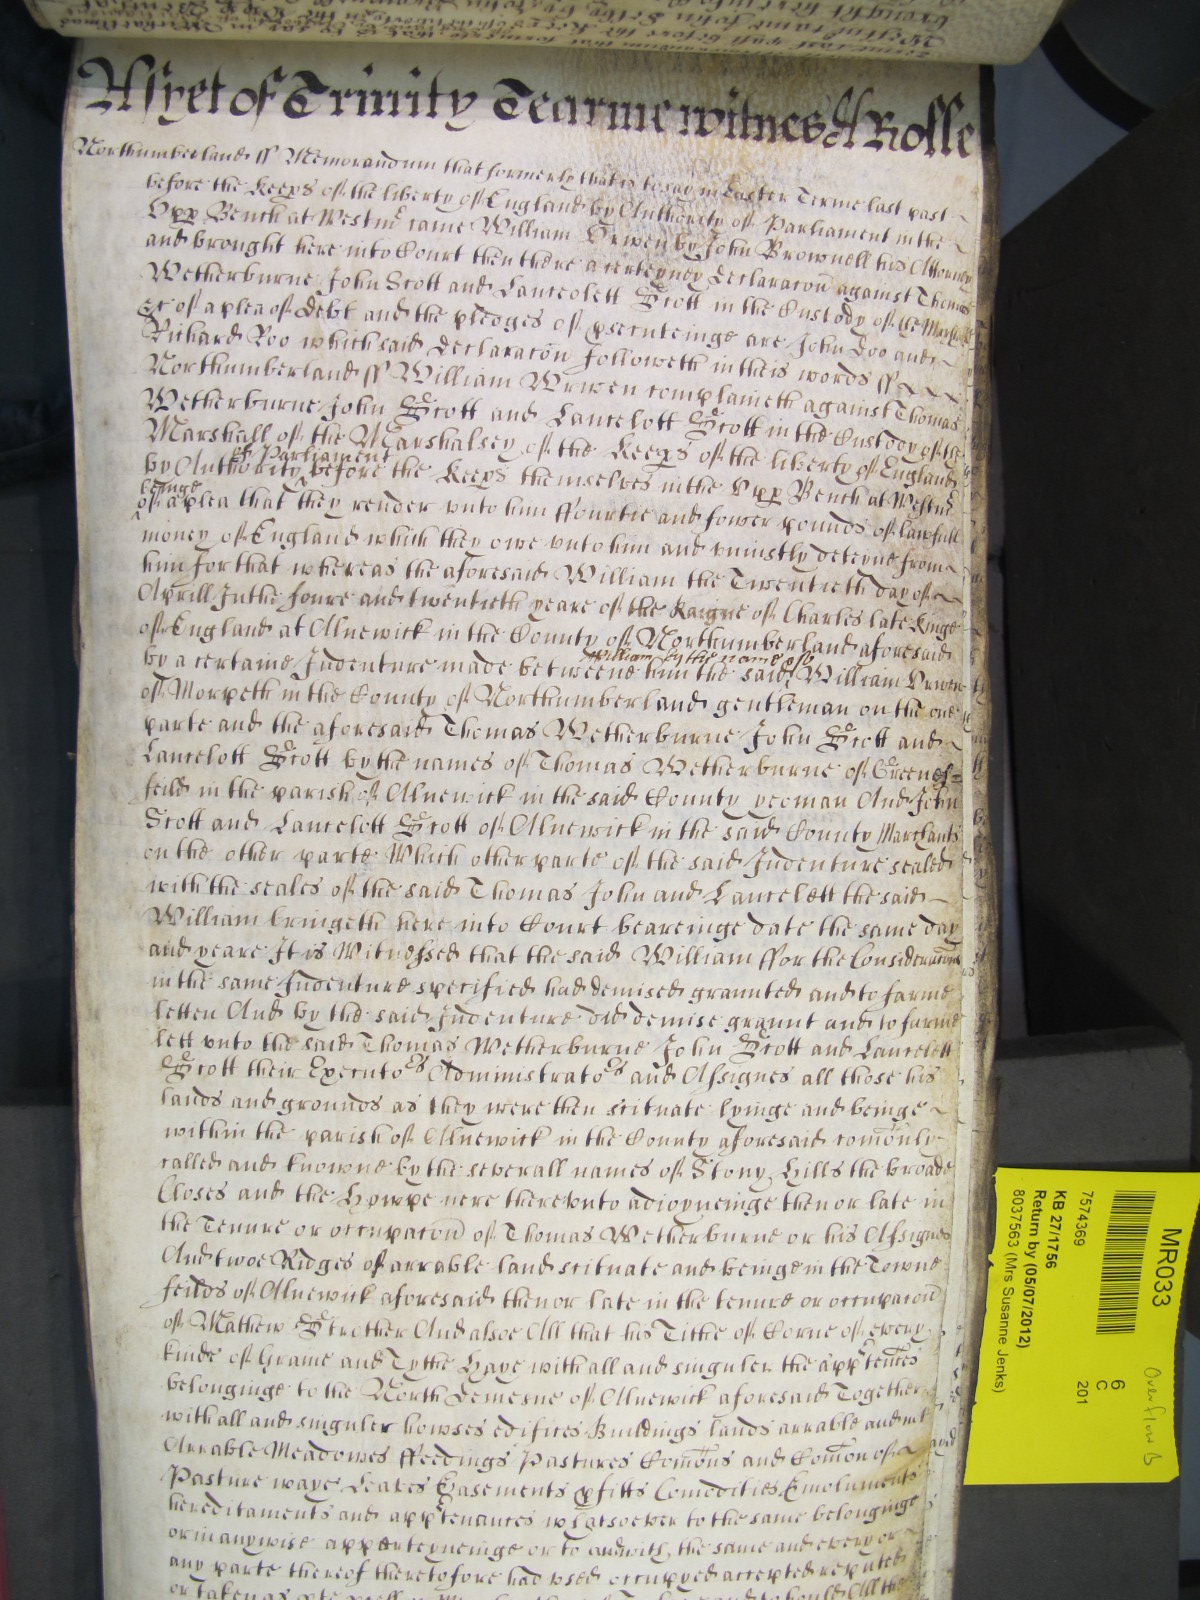 As yet of Trinity Tearme witnes H Rolle
Northumberland ss Memorandum that formerly that is to say in Easter Terme last past
before the Keeps of the liberty of England by Authority of Parliament in the
Upp Bench at Westmr came William Urwen by John Brownell his Attorney
and brought here into Court then there a certeyney declaracon against Thomas
Wetherburne John Scott and Lancelott Scott in the Custody of the Marshall
&c of a plea of debt and the pledges of psecuteinge are John Doo and
Richard Roo which said declaracon followeth in theis words ss
Northumberland ss William Urwen complaineth against Thomas
Wetherburne John Scott and Lancelott Scott in the Custody of the
Marshall of the Marshalsey of the Keeps of the liberty of England
of Parliament
by Authority before the Keeps themselves in the Upp Bench at Westmr
beinge
of a plea that they render unto him ffourtie and fower pounds of lawfull
money of England which they owe unto him and uniustly deteyne from
him for that whereas the aforesaid William the Twentieth day of
Aprill In the foure and twentieth yeare of the Raigne of Charles late Kinge
of England at Alnewick in the County of Northumberland aforesaid
William by the name of
by a certaine Indenture made betweene him the said William Urwen
of Morpeth in the County of Northumberland gentleman on the one
parte and the aforesaid Thomas Wetherburne John Scott and
Lancelott Scott by the names of Thomas Wetherburne of Greenes
feild in the parish of Alnewick in the said County yeoman And John
Scott and Lancelott Scott of Alnewick in the said County Marchants
on the other parte Which other parte of the said Indenture sealed
with the seales of the said Thomas John and Lancelett the said
William bringeth here into Court beareinge date the same day
and yeare It is Witnessed that the said William ffor the Consideracon
in the same Indenture specified had demised graunted and to farme
letten And by the said Indenture did demise graunt and to farme
lett unto the said Thomas Wetherburne John Scott and Lancelett
Scott their Executors Administrators and Assignes all those his
lands and grounds as they were then scituate lyinge and beinge
within the parish of Alnewick in the County aforesaid comonly
called and knowne by the severall names of Stony Hills the broade
Closes and the Howpe nere thereunto adioyneinge then or late in
the Tenure or occupacon of Thomas Wetherburne or his Assignes
And twoe Ridges of arrable land scituate and beinge in the Towne
feilds of Alnewick aforesaid then or late in the tenure or occupacon
of Mathew Strother And alsoe All that his Tithe of Corne of every
kinde of Graine and Tythe Haye with all and singuler the apptences
belonginge to the North demesne of Alnewick aforesaid Together
with all and singuler howses edifices Buildings lands arrable and not
Arrable Meadowes ffeedings Pastures Comons and Comon of
Pasture waye Leares Easements pfitts Comodities Emoluments
hereditaments and apptenances whatsoever to the same belonginge
or in anywise apperteyneinge or to or with the same and every or
any parte thereof theretofore had used occupyed accepted reputed
or taken as
MR033
7574369
KB 27/1756
Return by (05/07/2012)
8037563 (Mrs Susanne Jenks)
6
C
201
Overflow B